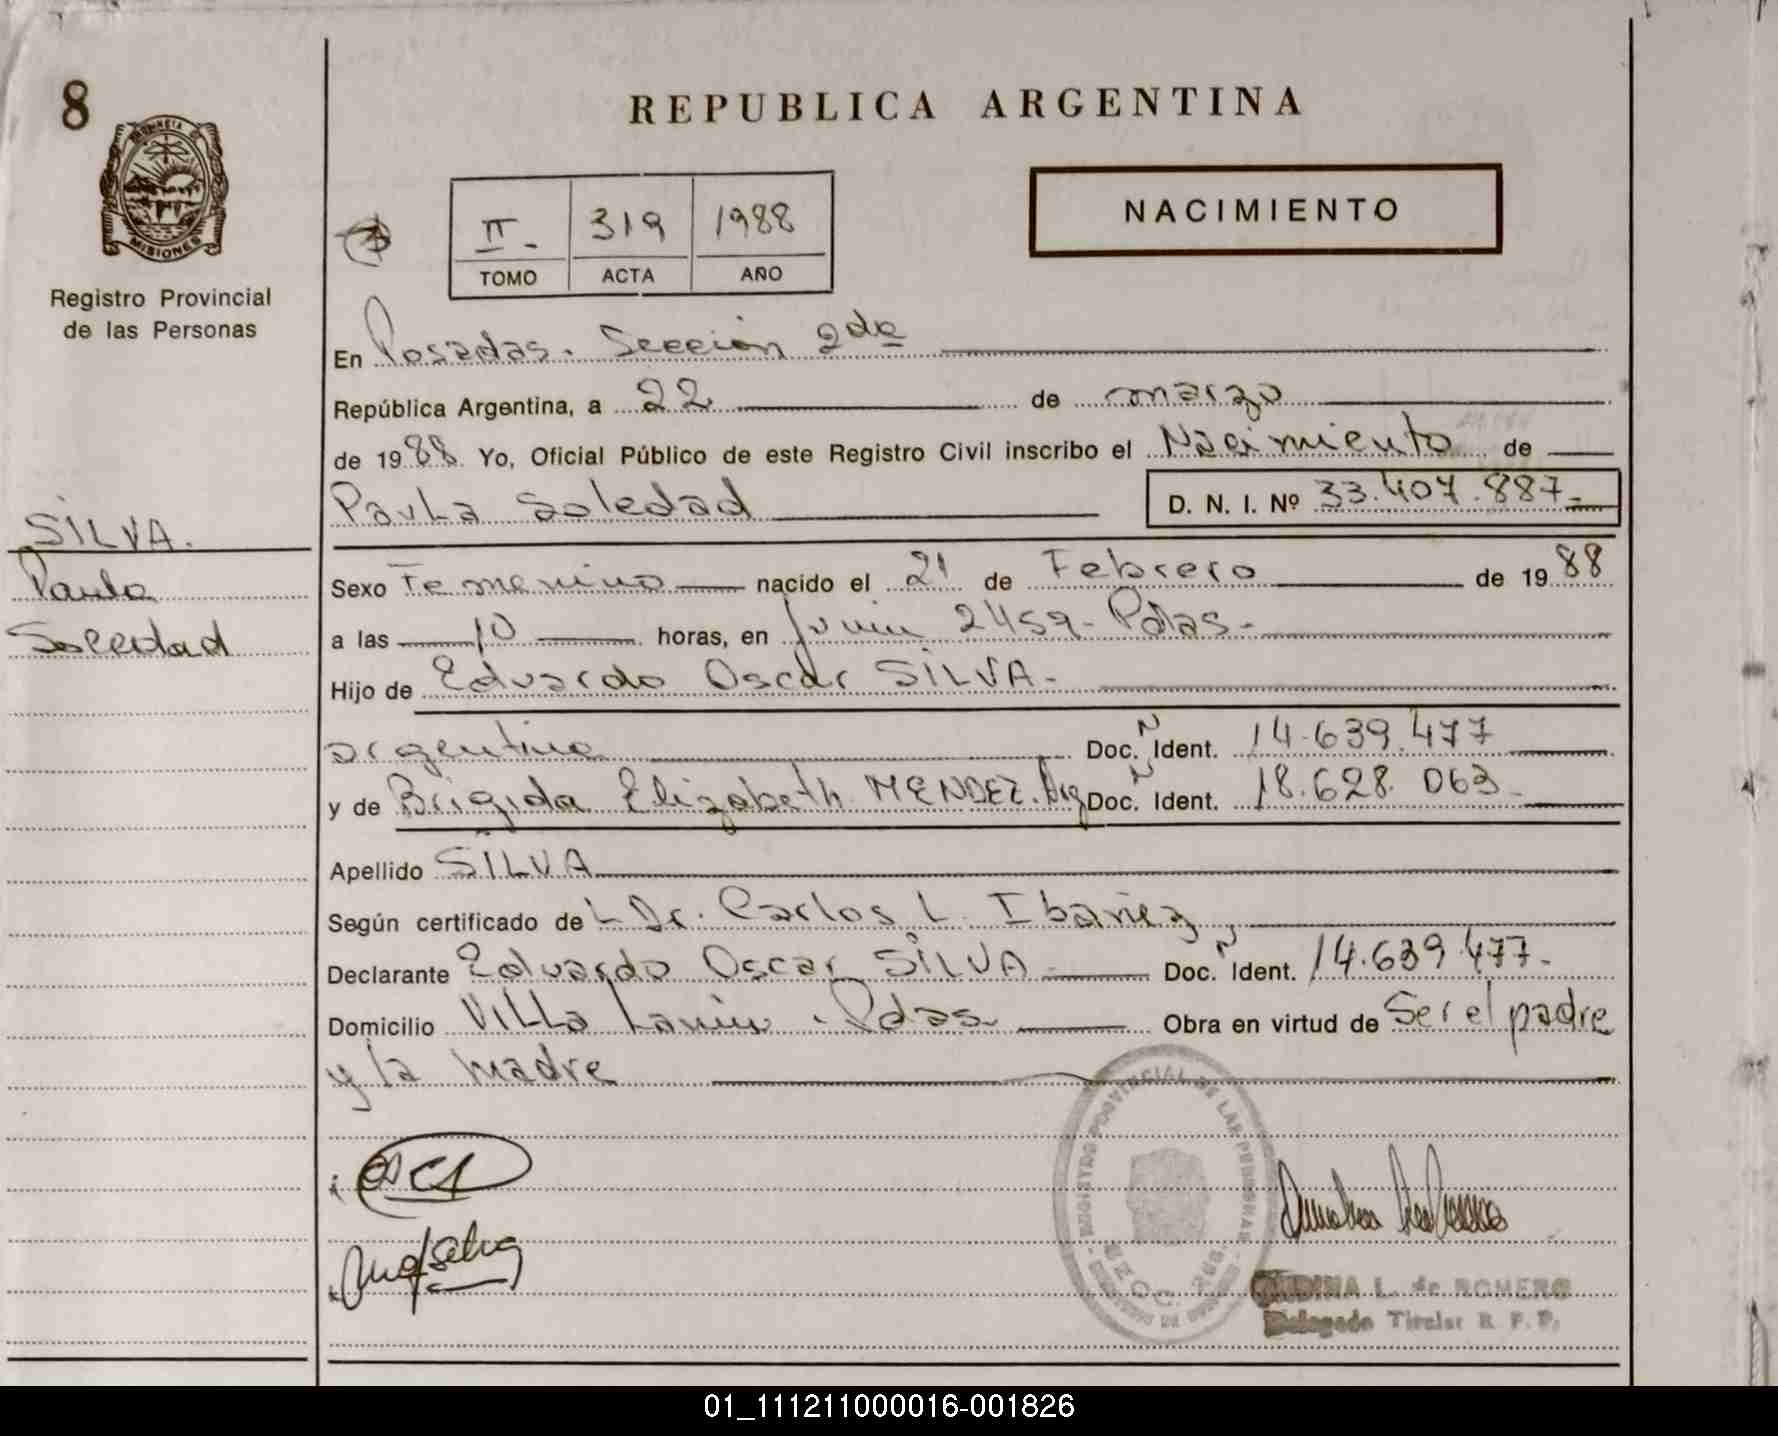 8
PROVINCIA DE
MISIONES
Registro Provincial
de las Personas
REPUBLICA ARGENTINA
NACIMIENTO
II - 319 1988
TOMO ACTA AÑO
En Posadas. Sección 2da
República Argentina, a 22 de marzo
de 1988 Yo, Oficial Público de este Registro Civil inscribo el Nacimiento de
Paula Soledad D. N. I. Nº 33.407.887-
SILVA.
Paula
Soledad
Sexo Femenino nacido el 21 de Febrero de 1988
a las 10 horas, en Junín 2459- Pdas.-
Hijo de Eduardo Oscar SILVA-
argentino Doc. N Ident. 14.639.477
y de Brigida Elizabeth MENDEZ. Arg Doc. N Ident. 18.628.063-
Apellido SILVA
Según certificado de L Dr. Carlos L. Ibañez
Declarante Eduardo Oscar SILVA Doc. N Ident. 14.639.477-
Domicilio Villa Lanús - Pdas. Obra en virtud de Ser el padre
y la madre
REGISTRO PROVINCIAL DE LAS PERSONAS
SECC. 2da.
L. de ROMERO
Delegado Titular R. P. P.
01_111211000016-001826